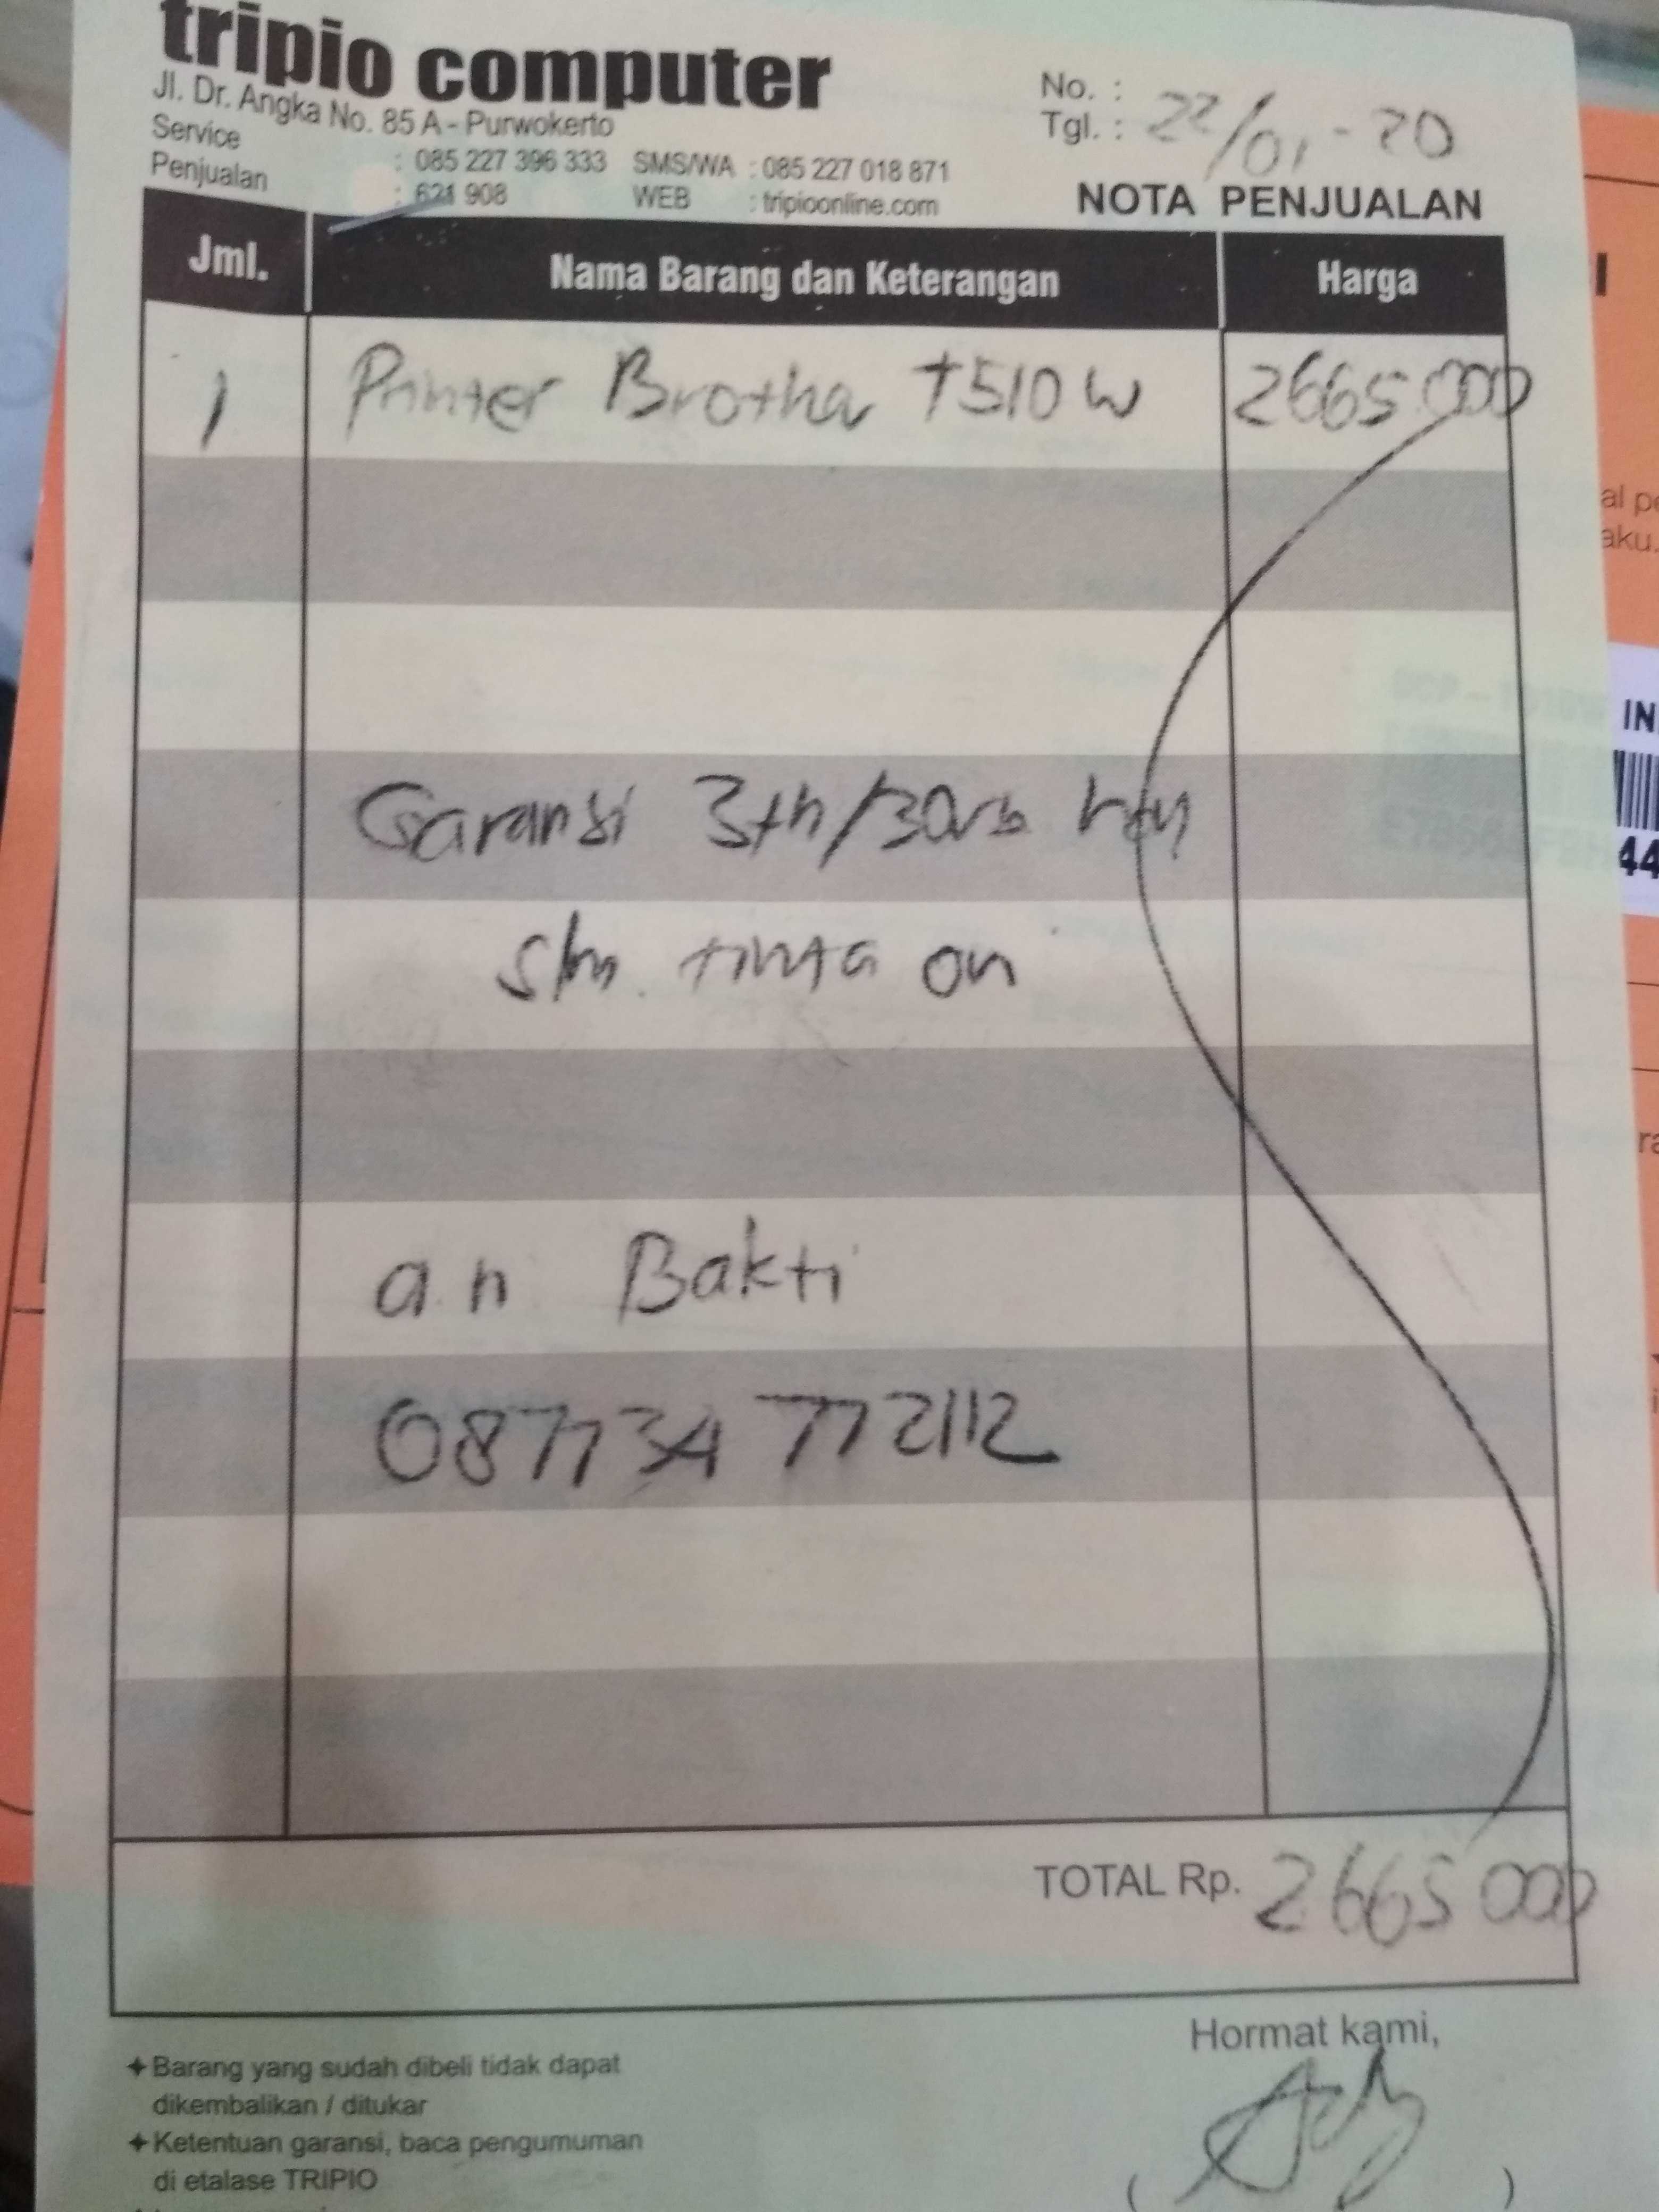 tripio computer
Jl. Dr. Angka No. 85 A - Purwokerto
Service : 085 227 396 333 SMS/WA : 085 227 018 871
Penjualan : 621 908 WEB : tripioonline.com
No. :
Tgl. : 22/01-20
NOTA PENJUALAN
Jml. Nama Barang dan Keterangan Harga
1 Printer Brotha T510W 2665 000
Garansi 3th/30rb
tinta on
a.n Bakti
087734 772112
TOTAL Rp. 2665 000
Hormat kami,
Barang yang sudah dibeli tidak dapat
dikembalikan / ditukar
Ketentuan garansi, baca pengumuman
di etalase TRIPIO
( )
IN
44
al pe
aku.